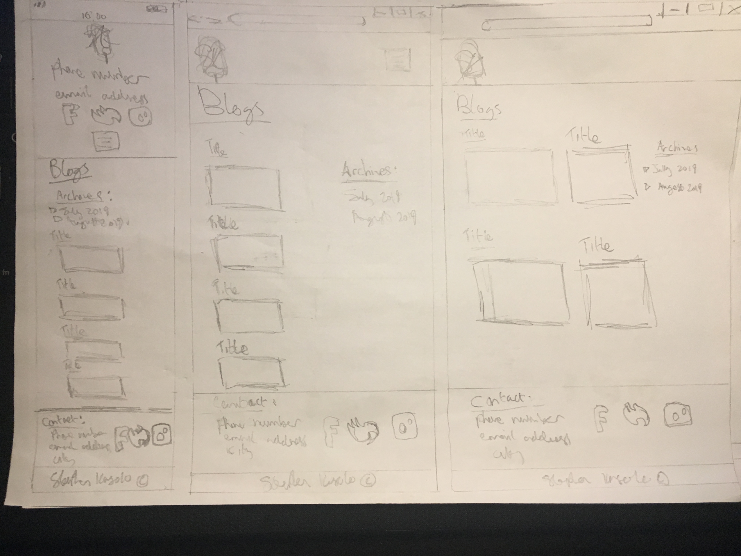 10:00
phone number
email address
F
Blogs
Archives:
July 2019
Title
Title
Title
Title
Contact:
Phone number
email address
city
F
Stephen Kasolo ©
Blogs
Title
Title
Title
Title
Archives:
July 2019
August 2019
Contact:
phone number
email address
city
F
Stephen Kasolo ©
Blogs
Title
Title
Archives
July 2019
August 2019
Title
Title
Contact:
phone number
email address
city
F
Stephen Kasolo ©